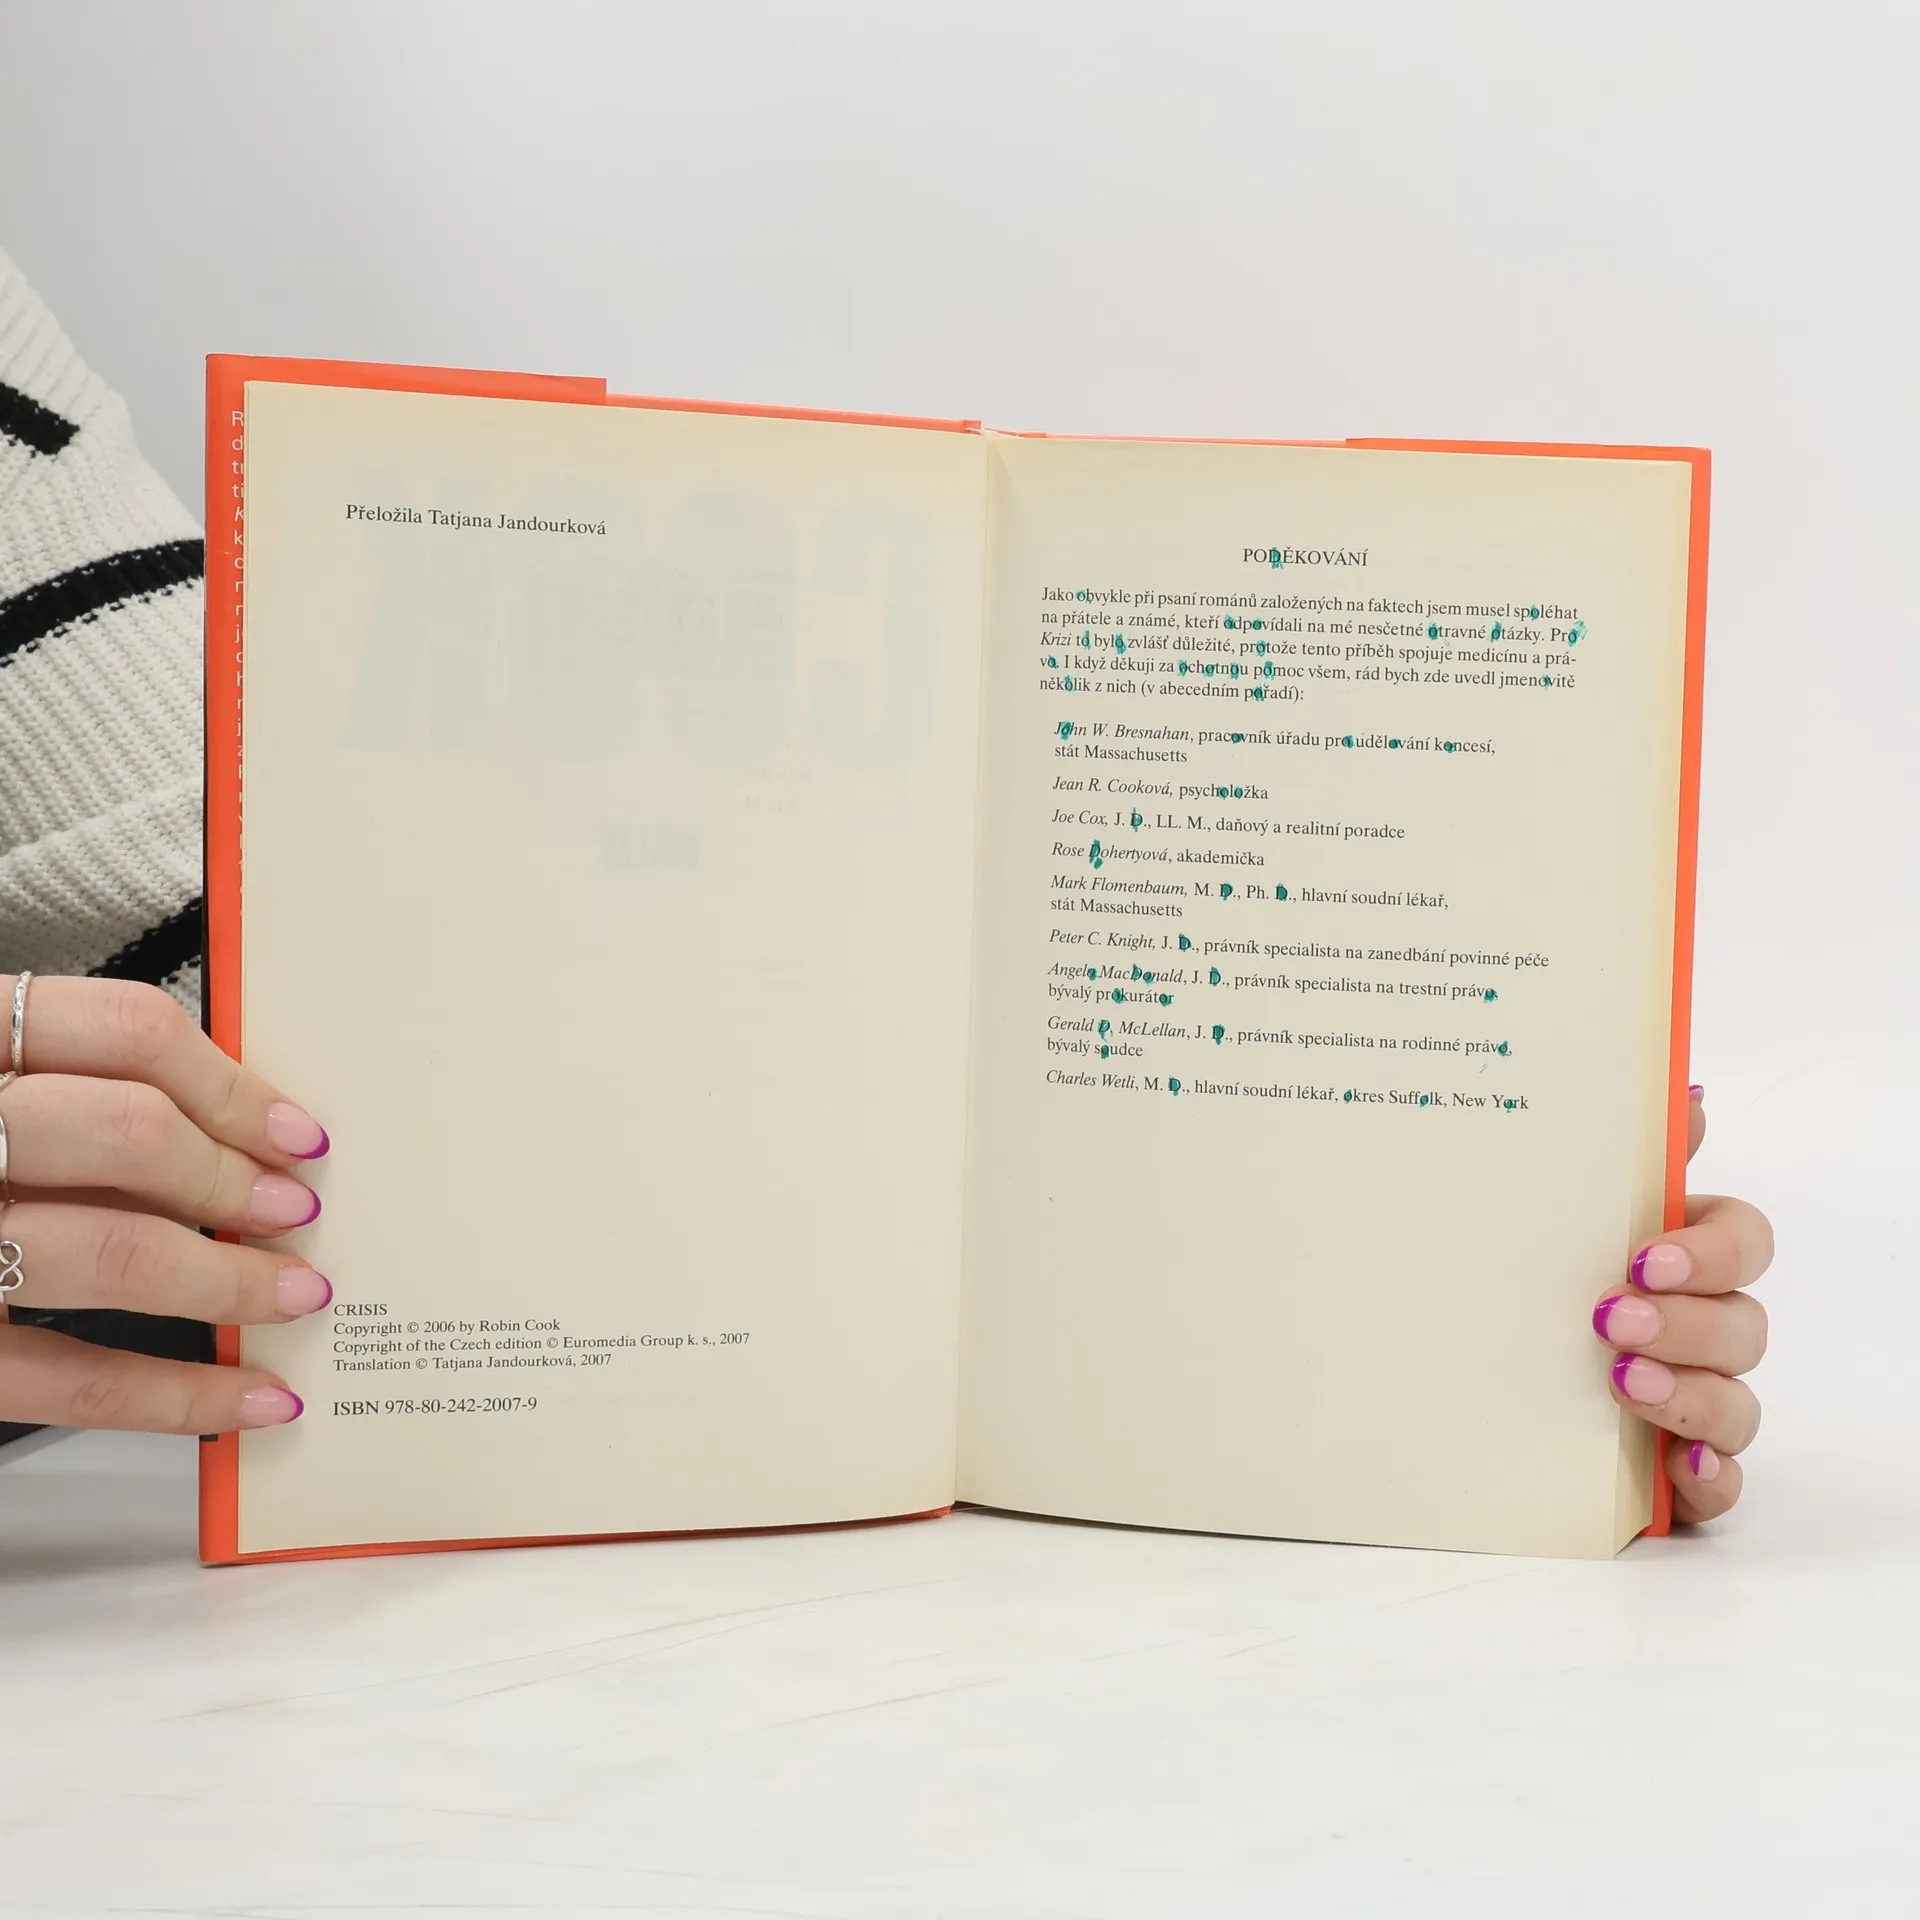 Přeložila Tatjana Jandourková
CRISIS
Copyright © 2006 by Robin Cook
Copyright of the Czech edition © Euromedia Group k. s., 2007
Translation © Tatjana Jandourková, 2007
ISBN 978-80-242-2007-9
PODĚKOVÁNÍ
Jako obvykle při psaní románů založených na faktech jsem musel spoléhat
na přátele a známé, kteří odpovídali na mé nesčetné otravné otázky. Pro
Krizi to bylo zvlášť důležité, protože tento příběh spojuje medicínu a prá-
vo. I když děkuji za ochotnou pomoc všem, rád bych zde uvedl jmenovitě
několik z nich (v abecedním pořadí):
John W. Bresnahan, pracovník úřadu pro udělování koncesí,
stát Massachusetts
Jean R. Cooková, psycholožka
Joe Cox, J. D., LL. M., daňový a realitní poradce
Rose Dohertyová, akademička
Mark Flomenbaum, M. D., Ph. D., hlavní soudní lékař,
stát Massachusetts
Peter C. Knight, J. D., právník specialista na zanedbání povinné péče
Angelo MacDonald, J. D., právník specialista na trestní právo,
bývalý prokurátor
Gerald D. McLellan, J. D., právník specialista na rodinné právo,
bývalý soudce
Charles Wetli, M. D., hlavní soudní lékař, okres Suffolk, New York